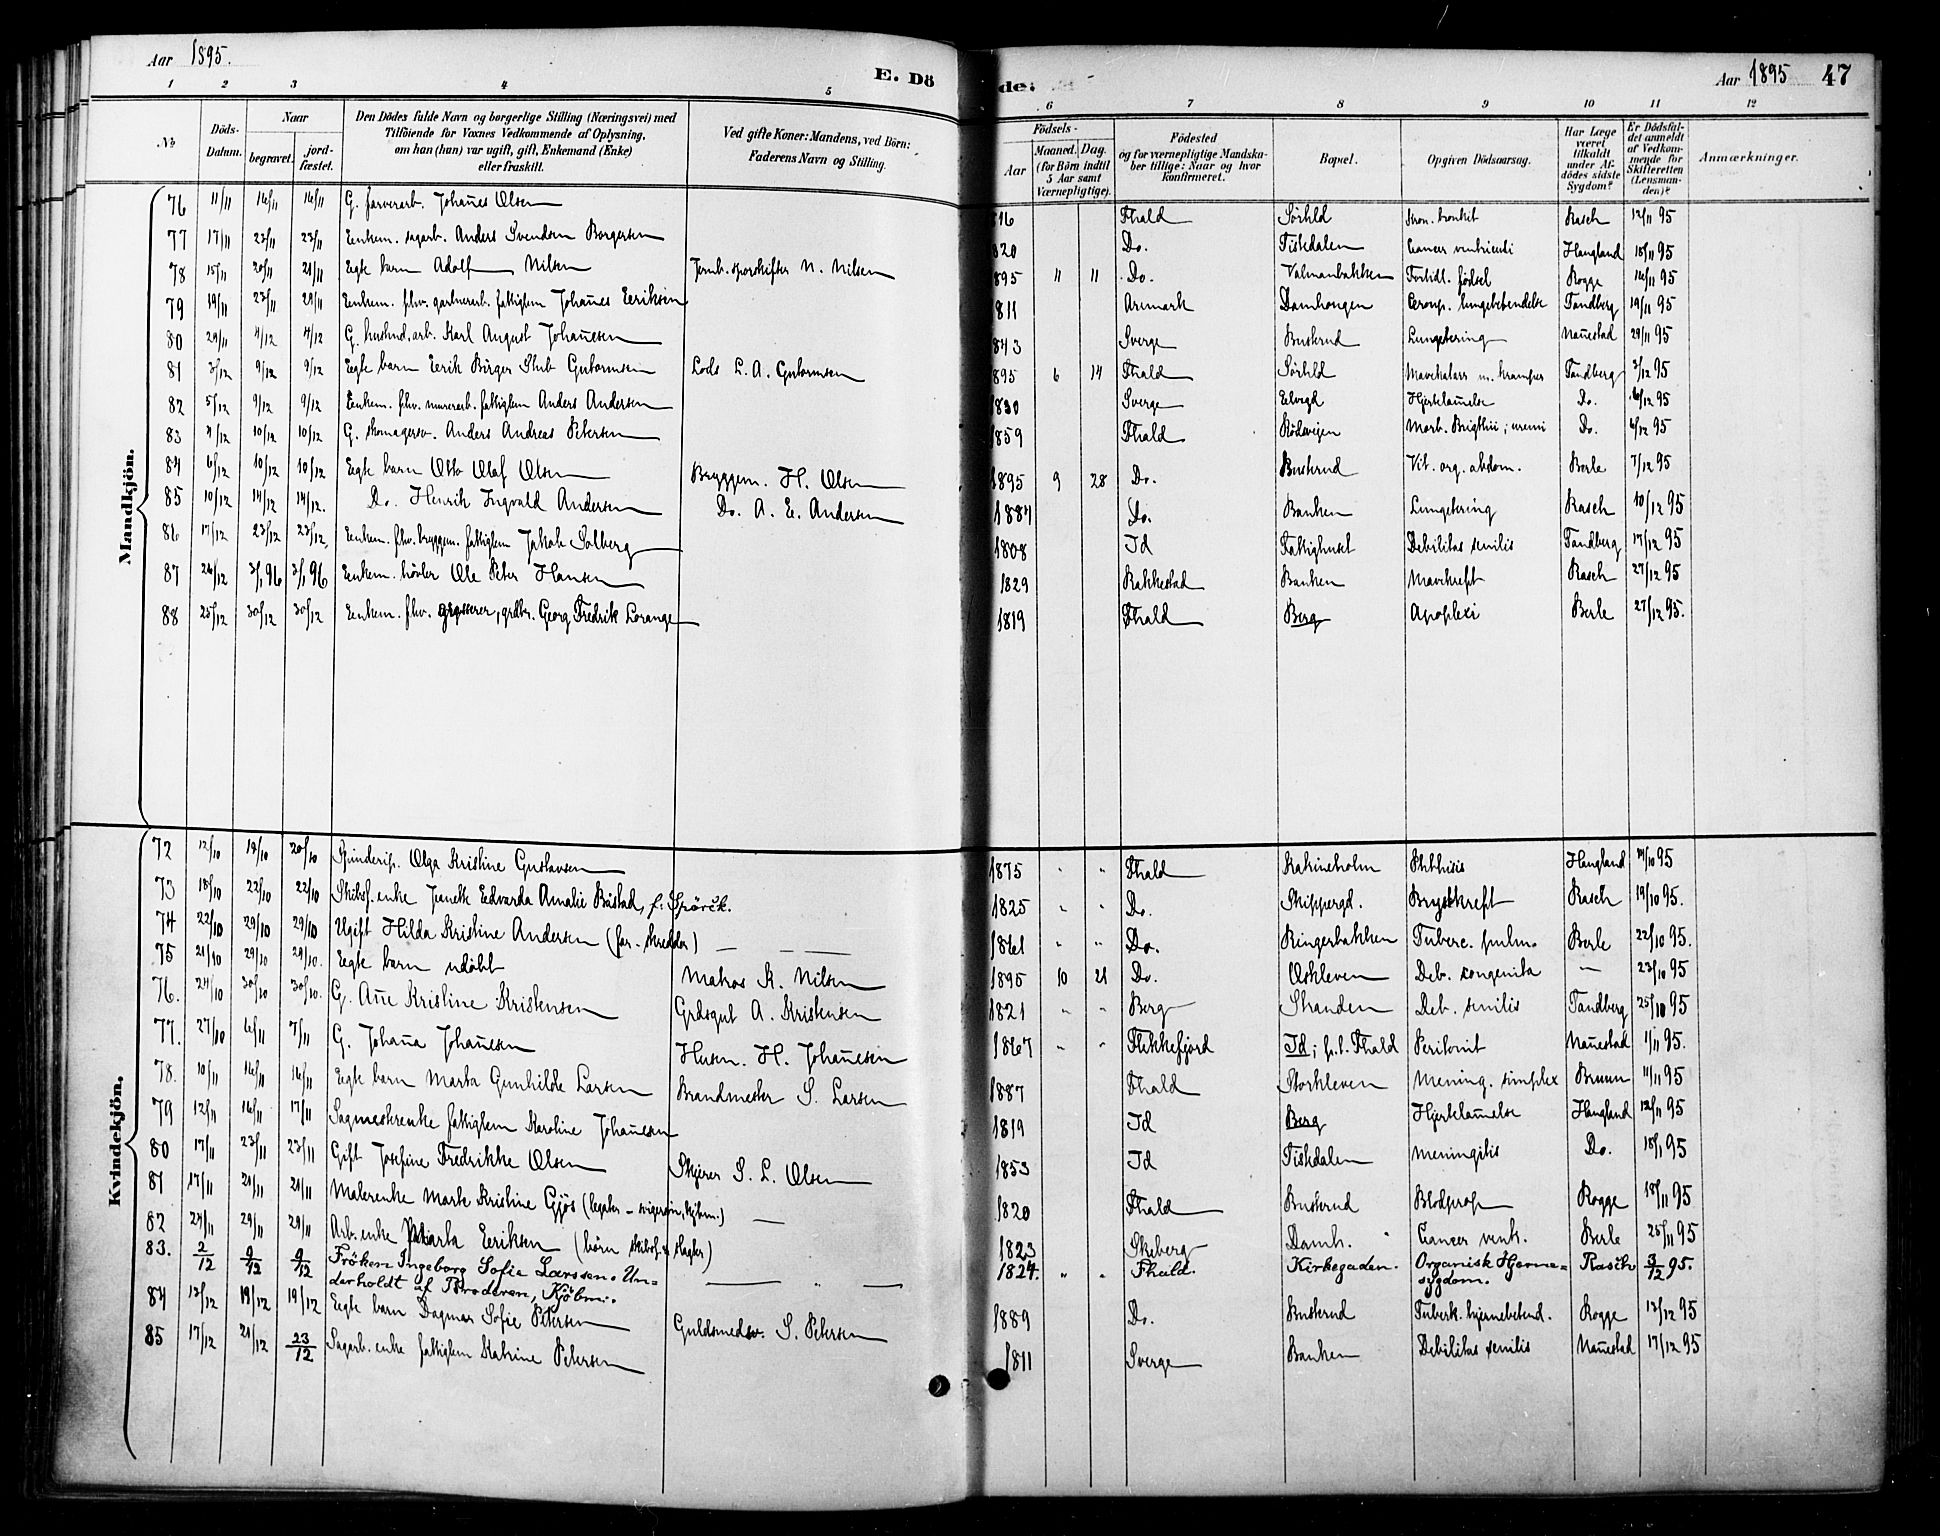 Aar 1895.
E. Dö
de:
Aar 1895 47
1 2 3 4 5 6 7 8 9 10 11 12
No
Döds-Datum.
Naar
begravet.
jord-fæstet.
Den Dödes fulde Navn og borgerlige Stilling (Næringsvei) med
Tilföiende for Voxnes Vedkommende af Oplysning,
om han (hun) var ugift, gift, Enkemand (Enke)
eller fraskilt.
Ved gifte Koner: Mandens, ved Börn:
Faderens Navn og Stilling.
Födsels-
Aar
Maaned. Dag.
(for Börn indtil
5 Aar samt
Værnepligtige).
Födested
og for værnepligtige Mandska-
ber tillige: Naar og hvor
konfirmeret.
Bopæl.
Opgiven Dödsaarsag.
Har Læge
været
tilkaldt
under Af-
dödes sidste
Sygdom?
Er Dödsfal-
det anmeldt
af Vedkom-
mende for
Skifteretten
(Lensman-
den)?
Anmærkninger.
Mandkjön.
76 11/11 16/11 16/11 G. farverarb. Johañes Olsen 816 Fhald Sörhld kron. bronkit Rasch 12/11 95
77 17/11 23/11 23/11 Enkem. sagarb. Anders Svendsen Borgersen 820 Do. Tistedalen Cancer ventriculi Haugland 18/11 95
78 15/11 20/11 21/11 Egte barn Adolf Nilsen Jernb. sporskifter N. Nilsen 895 11 11 Do. Valmanbakken Fortidl. födsel Rogge 16/11 95
79 19/11 23/11 29/11 Enkem. fhv. gartnerarb. fattiglem Johañes Eeriksen 811 Aremark Damhougen Croup. lungebetendelse Tandberg 19/11 95
80 29/11 4/12 4/12 G. husbnd. arb. Karl August Johañesen 843 Sverge Busterud Lungetering Nañestad 29/11 95
81 3/12 9/12 9/12 Egte barn Eerik Birger Stub Gutormsen Lods L. A. Gutormsen 895 6 14 Fhald Sörhld Mavekatarr m. kramper Tandberg 3/12 95
82 5/12 9/12 9/12 Enkem. fhv. murerarb. fattiglem Anders Andersen 1830 Sverge Hjertelam̃else Do. 6/12 95
83 4/12 10/12 10/12 G. skomagersv. Anders Andreas Petersen 1859 Fhald Rödsveien Morb. Brigthii; uremi Do. 6/12 95
84 6/12 10/12 10/12 Egte barn Otto Olaf Olsen Bryggem. H. Olsen 1895 9 28 Do. Busterud Vit. org. abdom. Berle 7/12 95
85 10/12 14/12 14/12. Do. Henrik Ingvald Andersen Do. A. E. Andersen 1884 Do. Banken Lungetering Rasch 10/12 95
86 17/12 23/12 23/12, Enkem. fhv. bryggem. fattiglem Jakob Solberg 1808 Id Fattighuset Debilitas senilis Tandberg 17/12 95
87 26/12 3/1 96 3/1 96 Enkem. hövler Ole Peter Hansen 1829 Rakkestad Banken Mavekreft Rasch 27/12 95
88 25/12 30/12 30/12 Enkem. fhv. grosserer, grdbr. Georg Fredrik Lorange 1819 Fhald Berg Apoplexi Berle 27/12 95.
Kvindekjön.
72 12/10 19/10 20/10 Spinderip. Olga Kristine Gustavsen 1875 Fhald Katrineholm Phthisis Haugland 14/10 95
73 18/10 22/10 22/10 Skibsf. enke Jeanette Edvarda Amalie Büstad, f: Spörck. 1825 Do. Skippergd. Brystkreft Rasch 19/10 95.
74 22/10 29/10 29/10 Ugift Hilda Kristine Andersen (far - skredder) 1861 Do. Ringerbakken Tuberc. pulm. Berle 22/10 95.
75 21/10 29/10 29/10. Egte barn udöbt Matros K. Nilsen 1895 10 21 Do. Oskleven Deb. congenita — 23/10 95
76. 24/10 30/10 30/10. G. Añe Kristine Kristensen Grdsgut A. Kristensen 1821 Berg Stranden Deb. senilis Tandberg 25/10 95
77. 27/10 6/11 7/11 G. Johaña Johañesen Husm. H. Johañesen 1867 Flekkefjord Id; p.t. Fhald Peritonit Nañestad 1/11 95.
78. 10/11 16/11 16/11 Egte barn Marta Gunhilde Larsen Brandmester S. Larsen 1887 Fhald Storkleven Mening. simplex Bruun 11/11 95
79 12/11 16/11 17/11 Sagmesterenke fattiglem Karoline Johañesen 1819 Id Berg Hjertelam̃else Haugland 12/11 95
80 17/11 23/11 23/11 Gift Josefine Fredrikke Olsen Skjerer S. L. Olsen 1853 Id Tistedalen Meningitis Do. 18/1 95
81 17/11 21/11 21/11 Malerenke Marte Kristine Gjös (legater - svigersön, kjbm.) 1820 Fhald Busterud Blodprop Rogge 18/11 95
82 24/11 29/11 29/11 Arb. enke Marta Eeriksen (börn skibsf. & slagter) 1823 Skeberg Damh. Cancer vent. Berle 25/11 95
83. 2/12 9/12 9/12 Fröken Ingeborg Sofie Larssen. Un= 1824. Fhald. Kirkegaden. Organisk Hjerne= Rasch 3/12 95.
derholdt af Broderen, Kjöbm. sygdom.
84 12/12 19/12 19/12 Egte barn Dagmar Sofie Petersen Guldsmedsv. S. Petersen 1889 Do. Busterud Tuberk. hjernebetend. Rogge 12/12 95
85 17/12 21/12 23/12 Sagarb. enke fattiglem Katrine Petersen 1811 Sverge Banken Debilitas senilis Nañestad 17/12 95